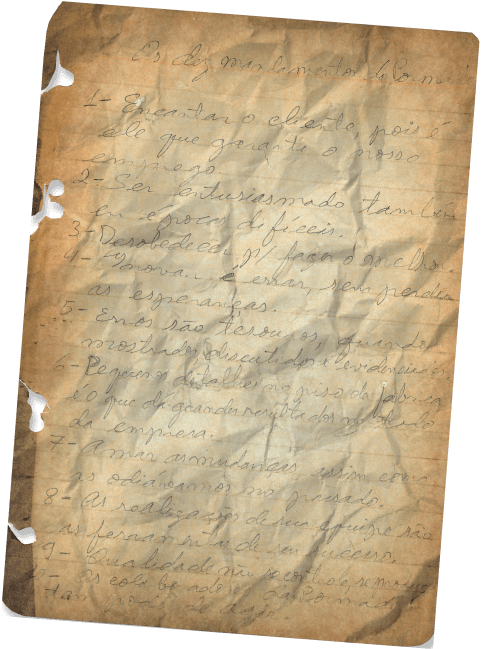 Os dez mandamentos da
1- Encantar o cliente, pois é
ele que garante o nosso
emprego.
2- Ser entusiasmado também
em épocas difíceis.
3- Desobedecer p/ fazer o melhor.
4- Inovar é errar, sem perder
as esperanças.
5- Erros são tesouros, quando
mostrados, discutidos e evidenciados
6- Pequenos detalhes no piso da fábrica
é o que dá grandes resultados
da empresa.
7- Amar as mudanças, assim como
as odiávamos no passado.
8- As realizações de sua equipe são
as ferramentas de seu sucesso.
9- Qualidade não se controla
Os colaboradores da